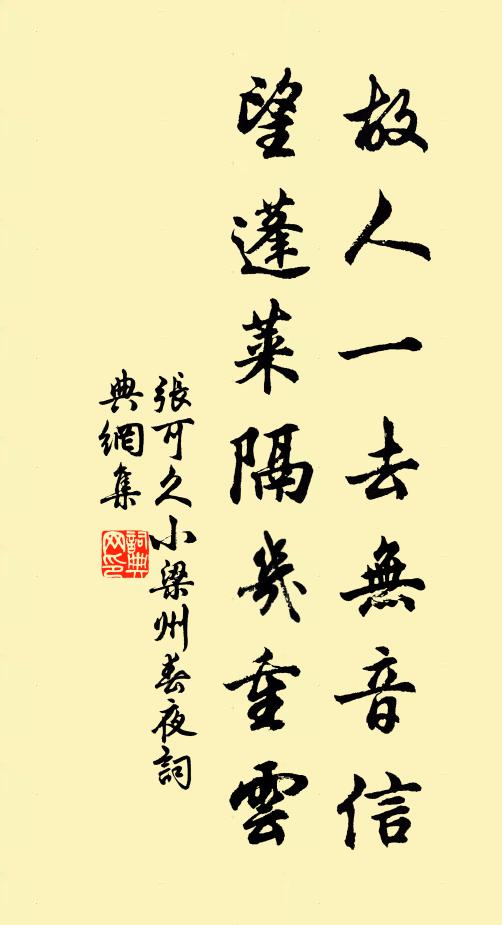 故人一去無音信
望蓬萊隔幾重雲
張可久小梁州春夜詞
典網集
詞典
网印